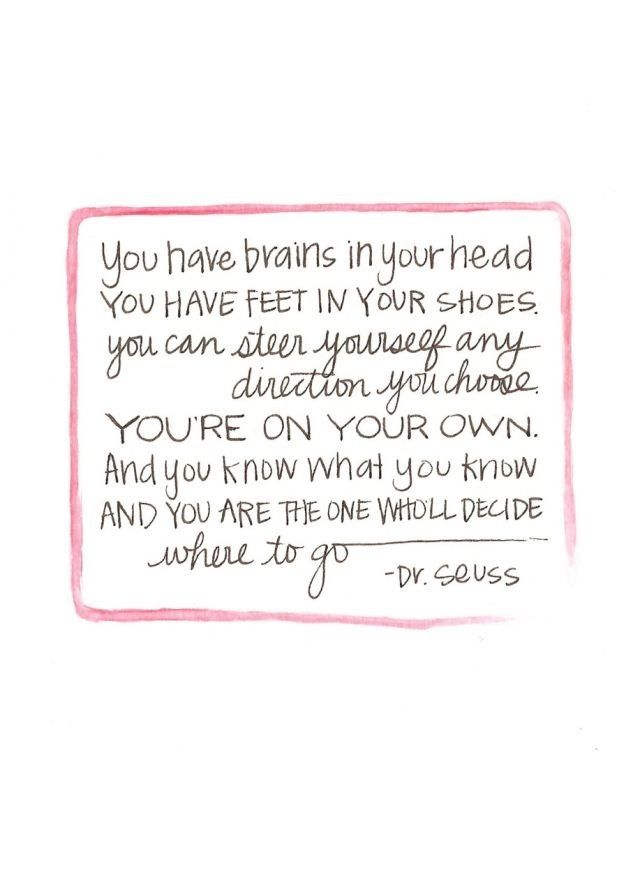 You have brains in your head
YOU HAVE FEET IN YOUR SHOES.
you can steer yourself any
direction you choose.
YOU'RE ON YOUR OWN.
And you know what you know
AND YOU ARE THE ONE WHO'LL DECIDE
where to go
-Dr. Seuss